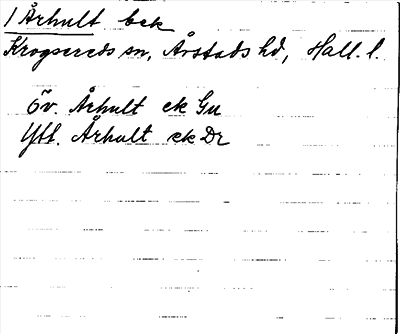 1 Århult bek
Krogsereds sn, Årstads hd, Hall. l.
Öv. Århult ek Gu
Ytt. Århult ek Dr